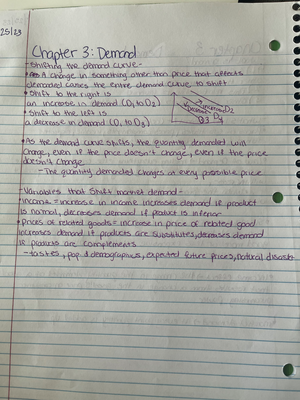 25/23
Chapter 3: Demand
- Shifting the demand curve -
• A change in something other than price that affects
demanded causes the entire demand curve to shift
• Shift to the right is
an increase in demand (D, to D2)
• Shift to the left is
a decrease in demand (D, to D3)
increase D2
decrease
D3
• As the demand curve shifts, the quantity demanded will
change, even if the price doesn't change, even if the price
doesn't change
- The quantity demanded changes @ every possible price
- Variables that Shift market demand -
• Income = increase in income increases demand if product
is normal, decreases demand if product is inferior
• Prices of related goods = increase in price of related good
increases demand if products are substitutes, decreases demand
if products are complements
- tastes, pop. & demographics, expected future prices, natural disasters